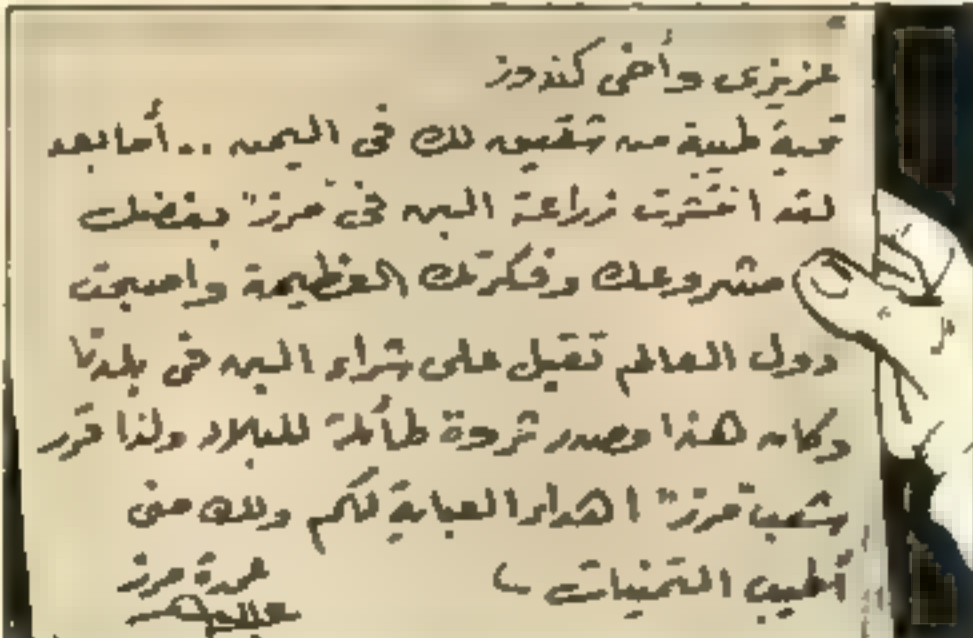 عزيزى وأخى كندوز
تحية طيبة من شقيق لك فى اليمن .. أما بعد
لقد انتشرت زراعة البن فى "مرز" بفضلك
مشروعك وفكرتك العظيمة وأصبحت
دول العالم تقبل على شراء البن فى بلدنا
وكان هذا مصدر ثروة طائلة للبلاد ولذا قرر
شعب "مرز" اهداء العباية لكم ولك منى
أطيب التمنيات
عمدة مرز